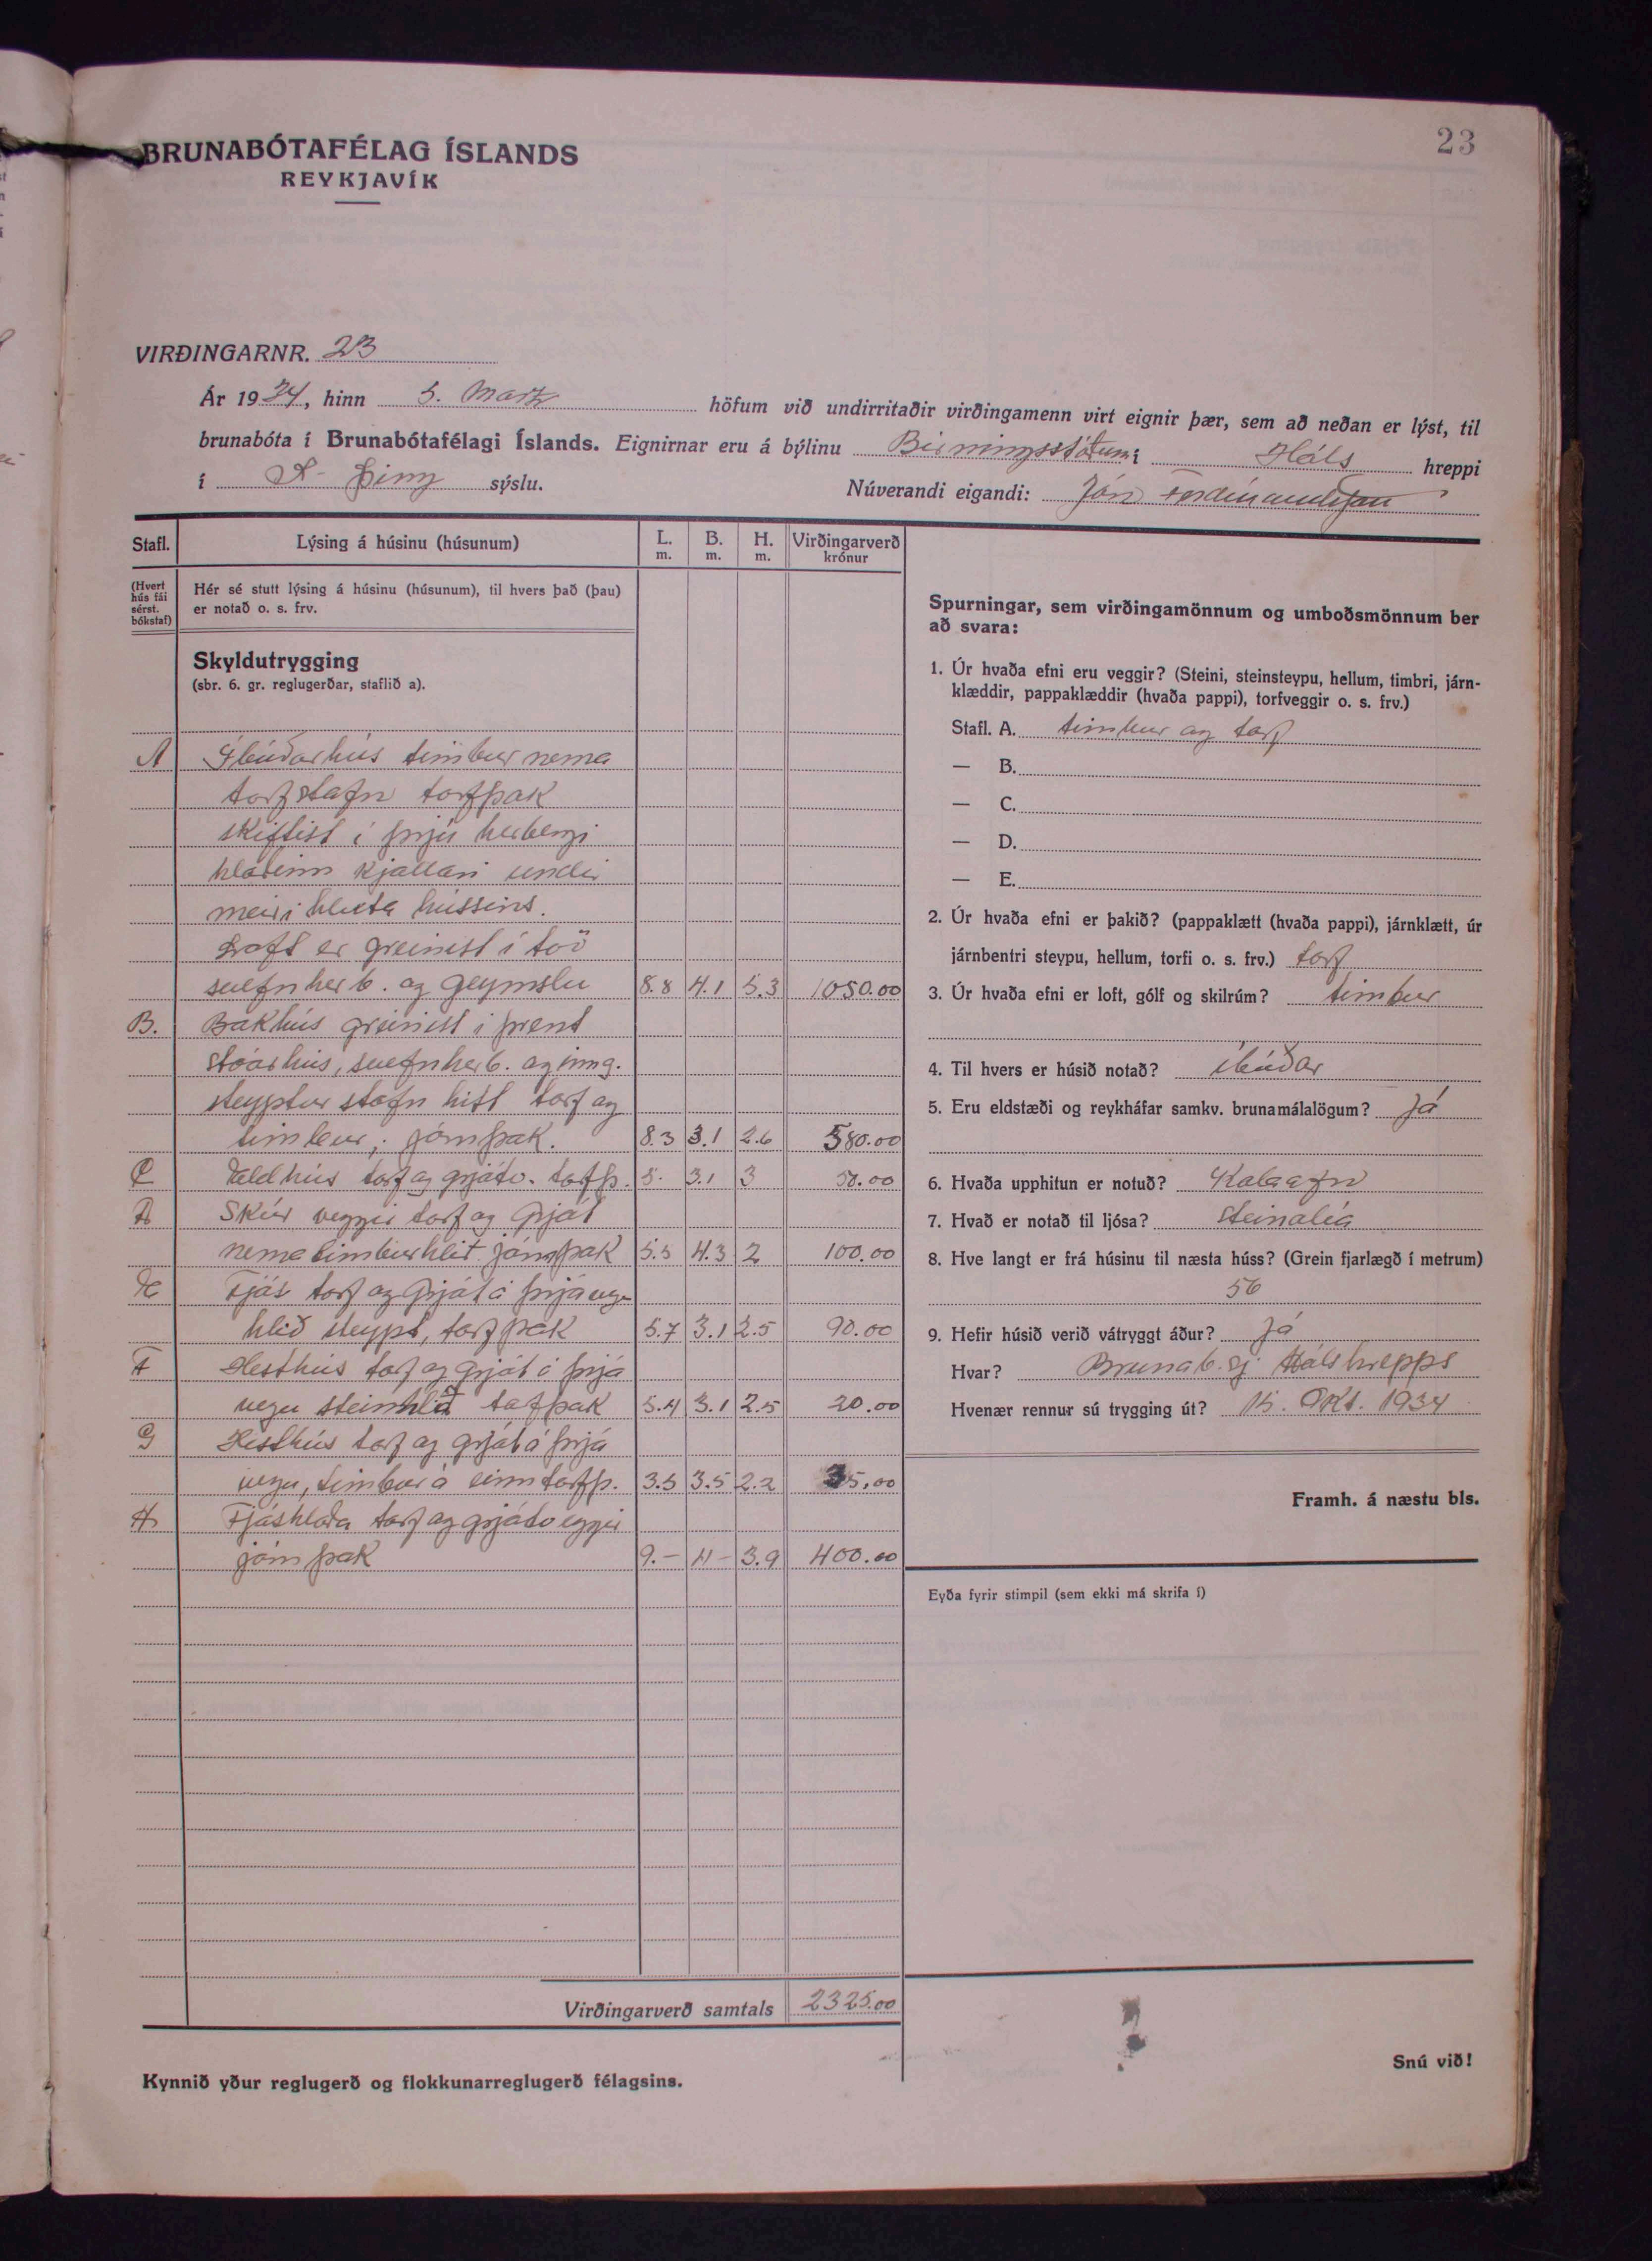 23
BRUNABÓTAFÉLAG ÍSLANDS
REYKJAVÍK
VIRÐINGARNR. 23
Ár 1934, hinn 5. Marz höfum við undirritaðir virðingamenn virt eignir þær, sem að neðan er lýst, til
brunabóta í Brunabótafélagi Íslands. Eignirnar eru á býlinu Birningsstöðum í Háls hreppi
í S- Þing sýslu. Núverandi eigandi: Jón Ferdinandsson
Stafl. Lýsing á húsinu (húsunum) L. m. B. m. H. m. Virðingarverð krónur
(Hvert hús fái sérst. bókstaf)
Hér sé stutt lýsing á húsinu (húsunum), til hvers það (þau)
er notað o. s. frv.
Skyldutrygging
(sbr. 6. gr. reglugerðar, staflið a).
A Íbúðarhús timbur nema
torfstafn torfþak
skiftist í þrjú herbergi
hlaðinn kjallari undir
meiri hluta hússins.
Loft er greinist í tvö
svefnherb. og geymslu 8.8 4.1 5.3 1050.00
B. Bakhús greinist í þrent
stóarhús, svefnherb. og inng.
steyptur stafn hitt torf og
timbur, járnþak. 8.3 3.1 2.6 580.00
C Eldhús torf og grjótv. torfþ. 5. 3.1 3 50.00
D Skúr veggir torf og grjót
nema timburhlið járnþak 5.5 4.3 2 100.00
E Fjós torf og grjót á þrjá vegu
hlið steypt, torfþak 5.7 3.1 2.5 90.00
F Hesthús torf og grjót á þrjá
vegu steinhlið torfþak 5.4 3.1 2.5 20.00
G Hesthús torf og grjót á þrjá
vegu, timbur á einn torfþ. 3.5 3.5 2.2 35,00
H Fjóshlaða torf og grjótveggir
járnþak 9.- 4- 3.9 400.00
Virðingarverð samtals 2325.00
Kynnið yður reglugerð og flokkunarreglugerð félagsins.
Spurningar, sem virðingamönnum og umboðsmönnum ber
að svara:
1. Úr hvaða efni eru veggir? (Steini, steinsteypu, hellum, timbri, járn-
klæddir, pappaklæddir (hvaða pappi), torfveggir o. s. frv.)
Stafl. A. timbur og torf
— B.
— C.
— D.
— E.
2. Úr hvaða efni er þakið? (pappaklætt (hvaða pappi), járnklætt, úr
járnbentri steypu, hellum, torfi o. s. frv.) torf
3. Úr hvaða efni er loft, gólf og skilrúm? timbur
4. Til hvers er húsið notað? íbúðar
5. Eru eldstæði og reykháfar samkv. brunamálalögum? Já
6. Hvaða upphitun er notuð? Kolaofn
7. Hvað er notað til ljósa? steinolía
8. Hve langt er frá húsinu til næsta húss? (Grein fjarlægð í metrum)
56
9. Hefir húsið verið vátryggt áður? Já
Hvar? Brunab. sj. Hálshrepps
Hvenær rennur sú trygging út? 15. Okt. 1934
Framh. á næstu bls.
Eyða fyrir stimpil (sem ekki má skrifa í)
Snú við!